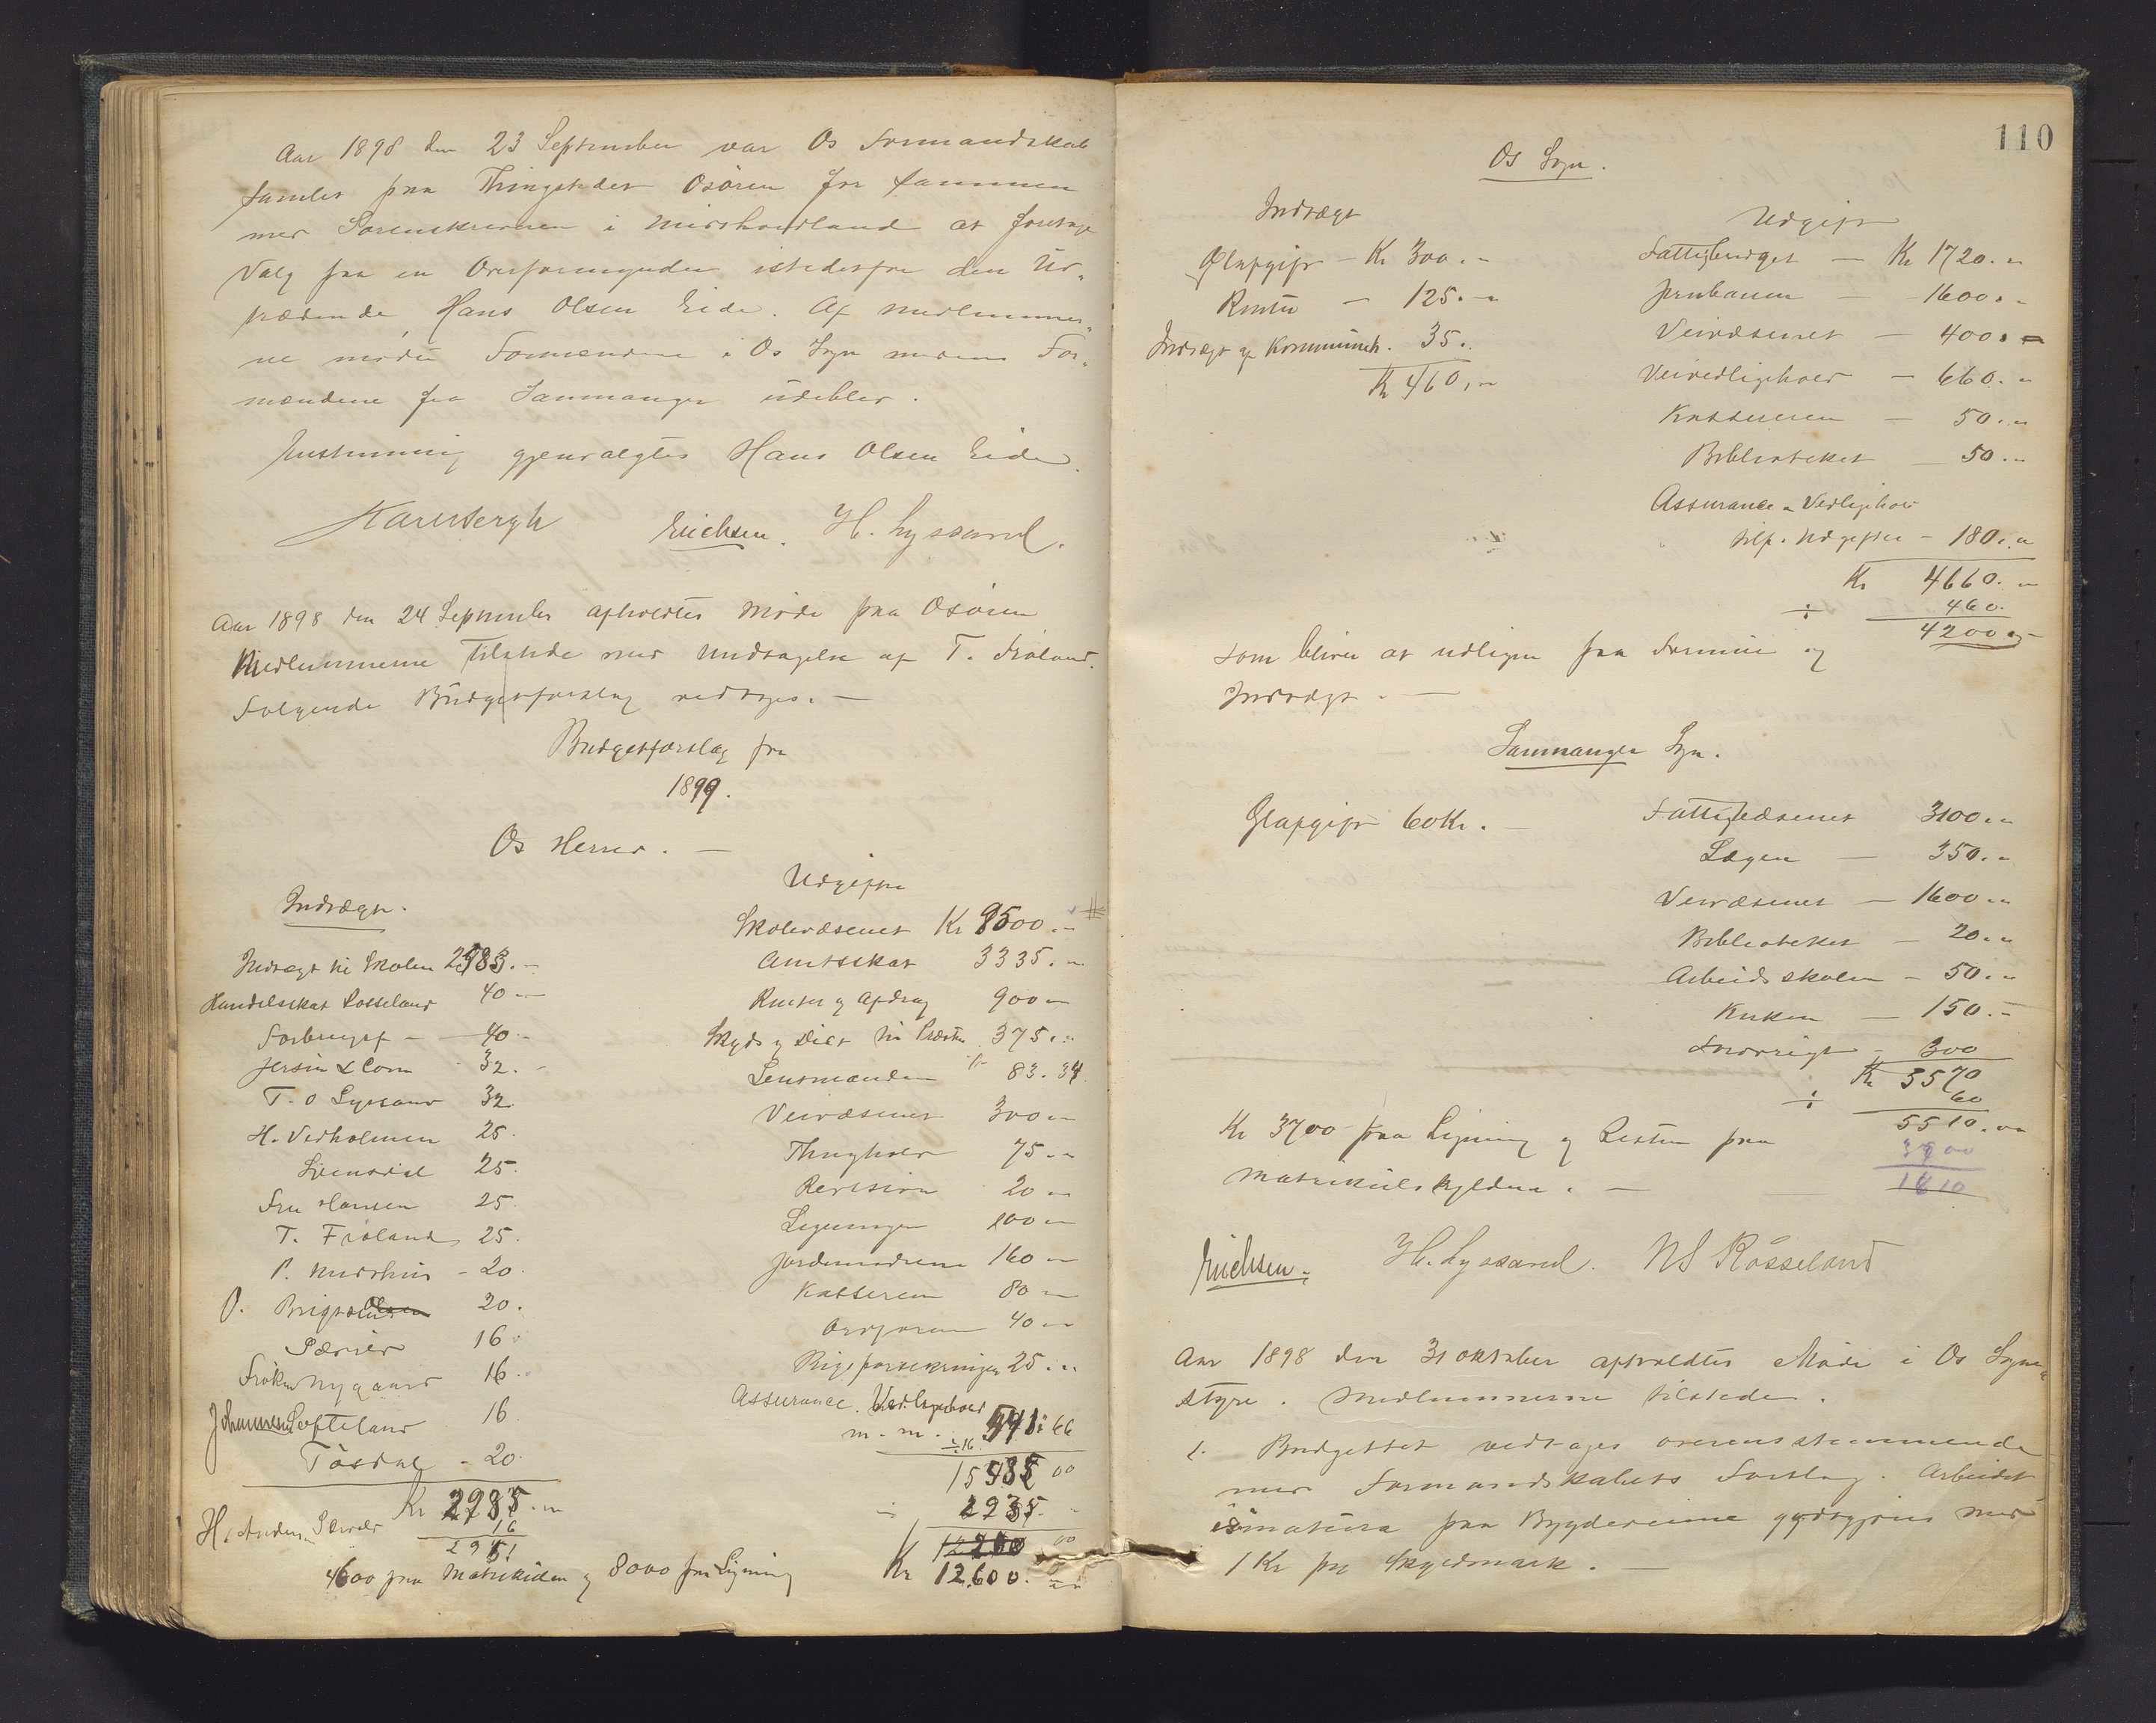 Aar 1898 den 23 September var Os Formandskab
samlet paa Thingstedet Osøren for sammen
med Sorenskriveren i Midthordland at foretage
Valg paa en Overformynder istedetfor den Ud-
trædende Hans Olsen Eide. Af Medlemmer-
ne mødte Formændene i Os Sogn medens For-
mændene fra Samnanger udeblev.
Enstemmig gjenvalgtes Hans Olsen Eide.
Erichsen. H. Lyssand.
Aar 1898 den 24 September afholdtes Møde paa Osøren
Medlemmerne tilstede med Undtagelse af T. Frøland.
Følgende Budgetforslag vedtoges. —
Budgetforslag for
1899.
Os Herred. —
Indtægt.
Indtægt til Skolen 2583. -
Handelsskat Røsseland 40 -
Forbrugsf — 40 -
Jersin & Com 32. -
T. O Lyssand 32.
H. Vedholmen 25.
25.
Fru Hansen 25.
T. Frøland 25.
P. Midthus - 20.
O. 20.
16
Frøken Nygaard 16.
Johannes Søfteland 16.
Tøsdal - 20.
Kr 2985. -
H. Anders. 16
4600 paa Matrikulen og 8000 paa Ligning
Udgifter
Skolevæsenet Kr 9500. -
Amtsskat 3335. -
Renter og Afdrag 900 -
Skyds og Diet til Præsten 375. -
Lensmanden 83. 34.
Veivæsenet 300 -
Thinghold 75. -
Revision 20 -
Ligningen 100 -
Jordemødrene 160 -
Kasseren 80 -
Overform 40 -
Rigsforsikringen 25. -
Assurance. Vedligehold
m. m. 541: 66
÷ 16
15535 00
÷ 2935. -
Kr 12.600. -
110
Os Sogn.
Indtægt
Glasgift — Kr 300. -
Renter — 125. -
Indtægt af Kommuneh. 35.
Kr 460. -
Udgift
Fattigbudget — Kr 1720. -
Jernbanen — 1600. -
Veivæsenet — 400. -
Veivedligehold — 660. -
Kasseren — 50. -
Biblioteket — 50. -
Assurance & Vedligehold
tilf. Udgifter — 180. -
Kr 4660. -
÷ 460.
4200 -
som bliver at udligne paa Formue og
Indtægt. —
Samnanger Sogn.
Glasgift 60 Kr. —
Fattigvæsenet 3100. -
Lægen — 350. -
Veivæsenet — 1600 -
Biblioteket — 20. -
Arbeidsskolen — 50. -
Kirken — 150. -
Forøvrigt — 300
Kr 5570
÷ 60
5510. -
3700
1810
Kr 3700 paa Ligning og Resten paa
Matrikulskylden. —
Erichsen. H. Lyssand. NS Røsseland
Aar 1898 den 31 oktober afholdtes Møde i Os Sogne-
styre. Medlemmerne tilstede.
1. Budgettet vedtages overensstemmende
med Formandskabets Forslag. Arbeidet
in natura paa Bygdeveiene godtgjøres med
1 Kr pr Skyldmark. —